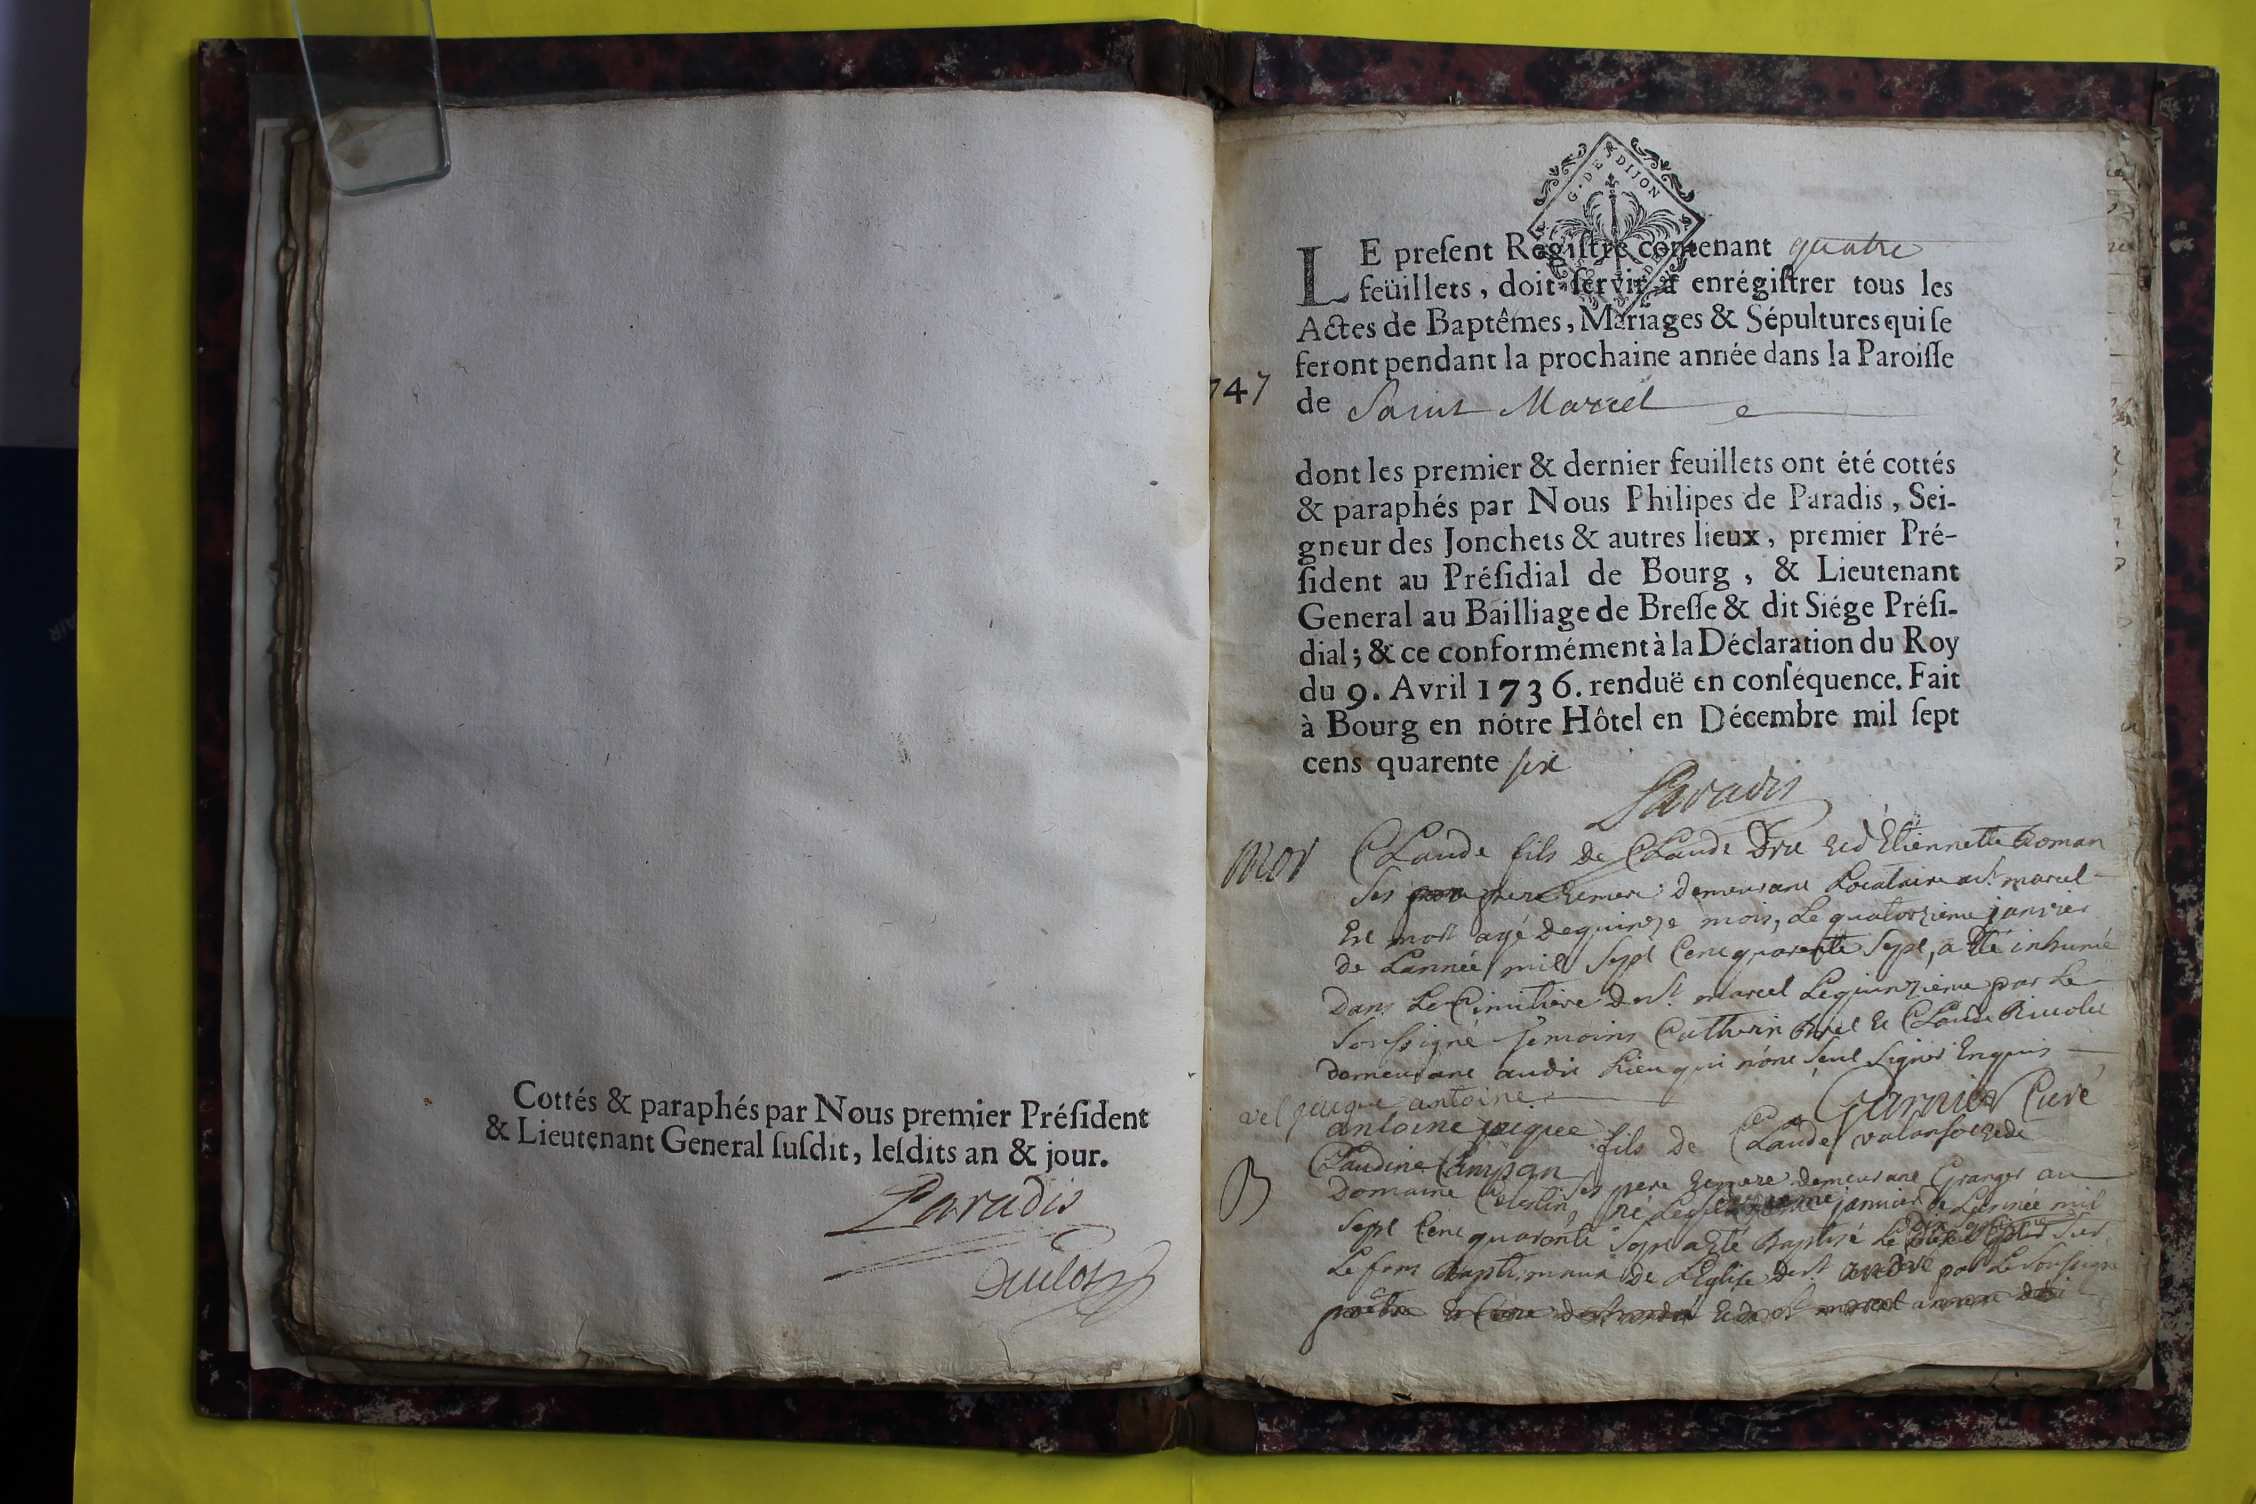 Cottés & paraphés par Nous premier Préſident
& Lieutenant General ſuſdit, leſdits an & jour.
Paradis
G. DE DIJON
LE preſent Regiſtre contenant quatre
feüillets, doit ſervir à enrégiſtrer tous les
Actes de Baptêmes, Mariages & Sépultures qui ſe
feront pendant la prochaine année dans la Paroiſſe
747
de Saint Marcel
dont les premier & dernier feuillets ont été cottés
& paraphés par Nous Philipes de Paradis, Sei-
gneur des Jonchets & autres lieux, premier Pré-
ſident au Préſidial de Bourg, & Lieutenant
General au Bailliage de Breſſe & dit Siége Préſi-
dial; & ce conformément à la Déclaration du Roy
du 9. Avril 1736. renduë en conſéquence. Fait
à Bourg en nótre Hôtel en Décembre mil ſept
cens quarente six
Paradis
mor
Claude fils de Claude Dru et d'Etiennette Roman
ses pere et mere demeurant Locataire a st marcel
est mort agé de quinze mois, le quatorzieme janvier
de Lannée mil sept cent quarente sept, a été inhumé
Dans Le Cimitiere de st marcel Le quinzieme par Le
soussigné temoins Catherin et Claude
demeurant audit Lieu qui n'ont seut signer Enquis
Garnier Curé
vel jacque antoine
antoine jacque fils de Claude et de
B
Claudine ses pere et mere demeurant Granger au
Domaine né le janvier de Lannée mil
sept cent quarante sept a été Baptisé Le sur
Le fons Baptismaux de L'Eglise de st andré par Le soussigné